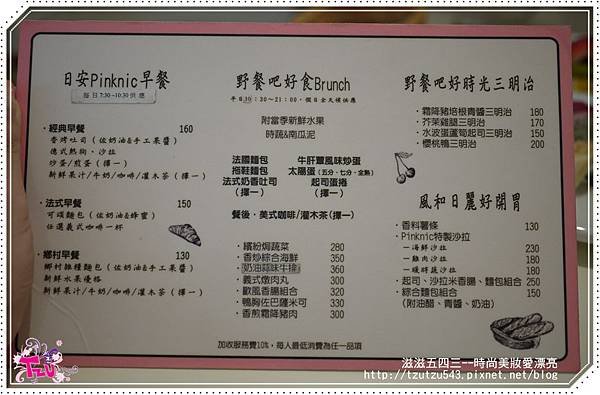 日安Pinknic早餐
每日7:30~10:30供應
·經典早餐 160
香烤吐司(佐奶油&手工果醬)
德式熱狗、沙拉
炒蛋/煎蛋(擇一)
新鮮果汁/牛奶/咖啡/灌木茶(擇一)
·法式早餐 130
可頌麵包(佐奶油&蜂蜜)
任選義式咖啡一杯
·鄉村早餐 150
鄉村雜糧麵包(佐奶油&手工果醬)
新鮮水果優格
新鮮果汁/牛奶/咖啡/灌木茶(擇一)
野餐吧好食Brunch
平日10:30~21:00,假日全天候供應
附當季新鮮水果
時蔬&南瓜泥
法國麵包 牛肝蕈風味炒蛋
拖鞋麵包 太陽蛋(五分、七分、全熟)
法式奶香吐司 起司蛋捲
(擇一) (擇一)
餐後·美式咖啡/灌木茶(擇一)
·繽紛焗蔬菜 280
·香炒綜合海鮮 350
·奶油蒜味牛排 360
·義式燉肉丸 300
·歐風香腸組合 320
·鴨胸佐巴薩米可 330
·香煎霜降豬肉 300
加收服務費10%,每人最低消費為任一品項
野餐吧好時光三明治
·霜降豬培根青醬三明治 180
·芥茉雞腿三明治 170
·水波蛋蘆筍起司三明治 150
·櫻桃鴨三明治 200
風和日麗好開胃
·香料薯條 130
·Pinknic特製沙拉
-海鮮沙拉 230
-雞肉沙拉 180
-暖時蔬沙拉 180
·起司、沙拉米香腸、麵包組合 250
·綜合麵包組合 150
(附油醋、青醬、奶油)
TZU
滋滋五四三--時尚美妝愛漂亮
http://tzutzu543.pixnet.net/blog